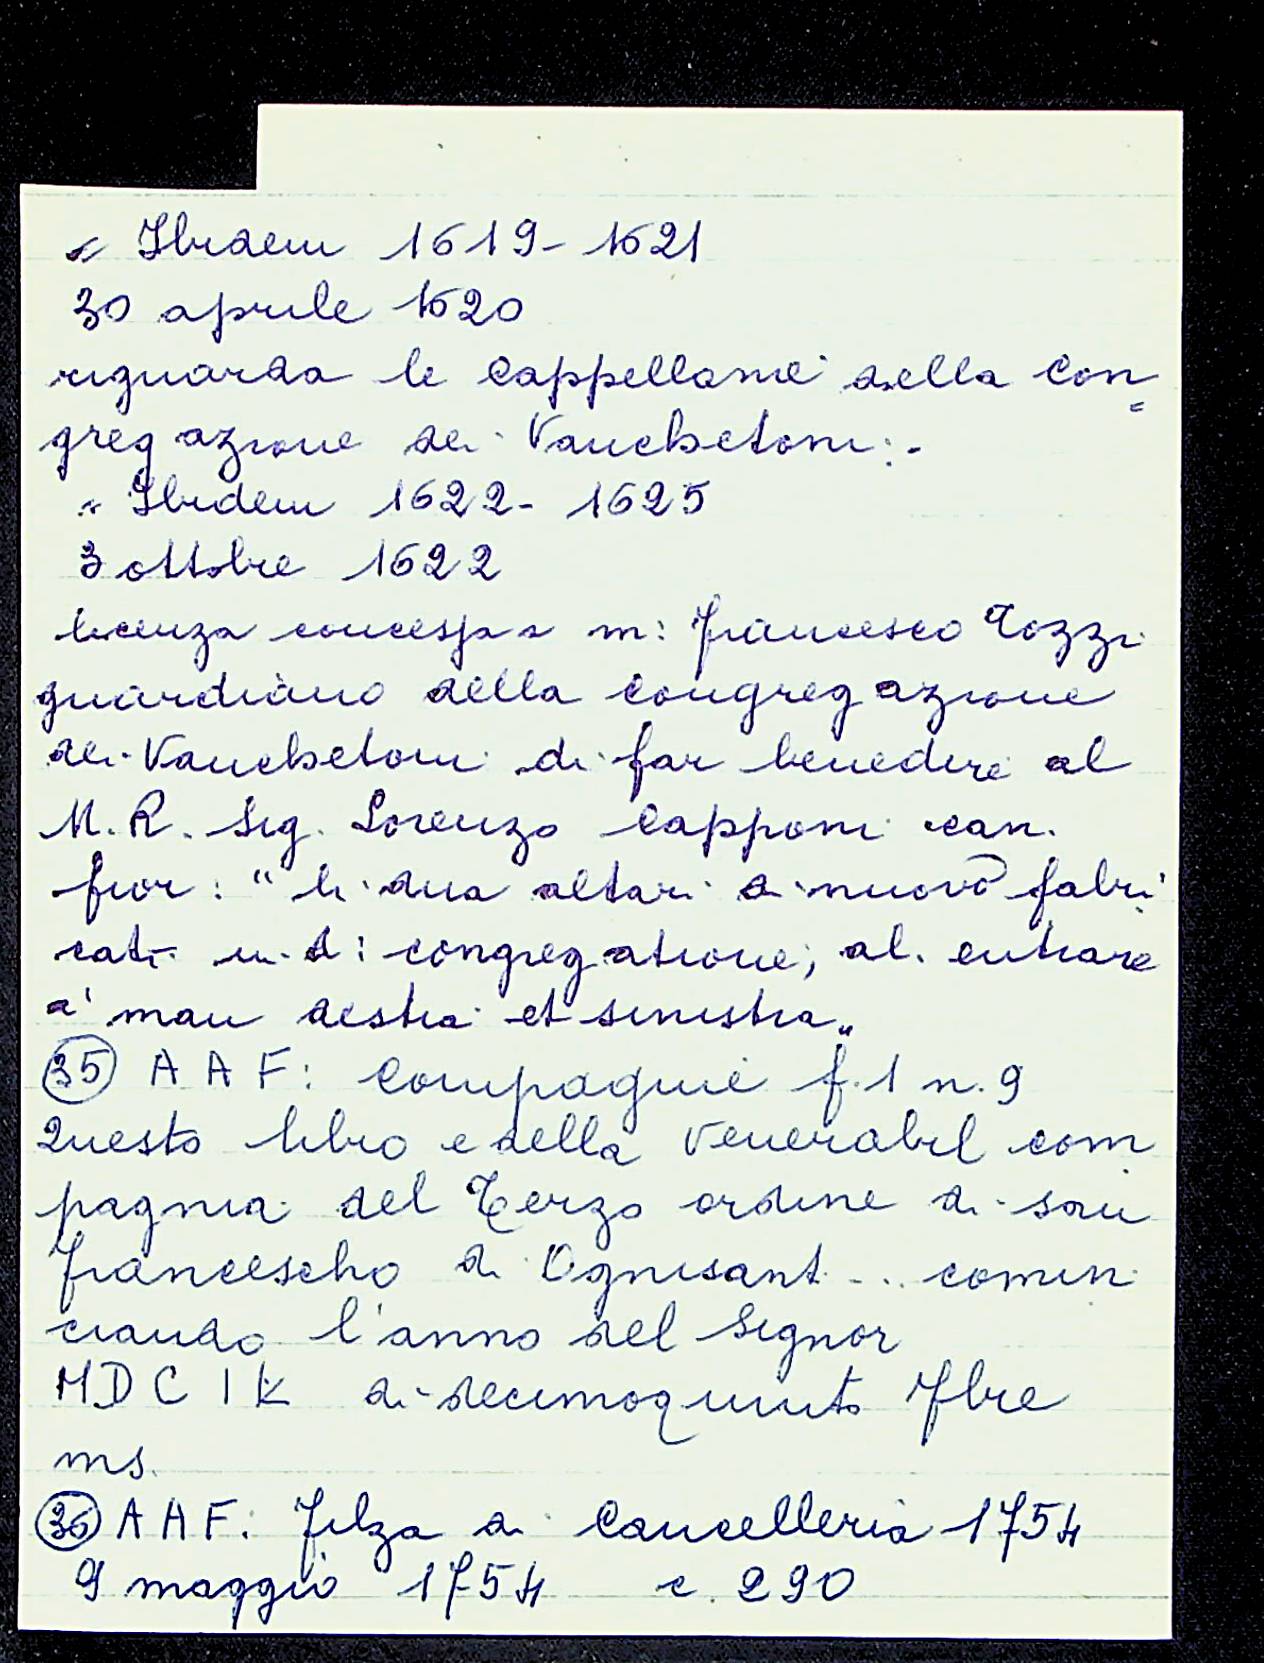 " Ibidem 1619-1621
30 aprile 1620
riguarda le Cappellanie della Con=
gregazione dei Vanchetoni:-
" Ibidem 1622-1625
3 ottobre 1622
licenza concessa a m: Francesco Tozzi
guardiano della Congregazione
dei Vanchetoni di far benedire al
M.R. Sig. Lorenzo Capponi can.
fior: "li dua altari di nuovo fabri
cati in d: congregatione, al entrare
a' man destra et sinistra"
(35) A A F: Compagnie f.1 n.9
Questo libro e della Venerabil com
pagnia del Terzo ordine di san
Francescho di Ognisanti... comin
ciando l'anno del Signor
MDCIX di decimoquinto 7bre
ms.
(36) A A F: Filza di Cancelleria 1754
9 maggio 1754 c. 290